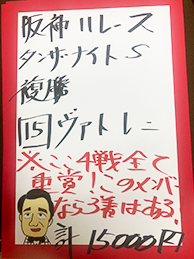 阪神11レース
タンザナイトS
複勝
15 ヴァトレニ
※ここ4戦全て
重賞!このメンバー
なら3着はある。
計 15000円